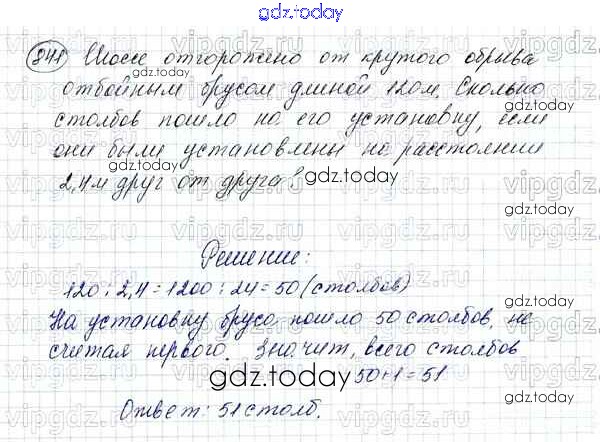 gdz.today
841) Шоссе отгорожено от крутого обрыва
gdz.today
отбойным брусом длиной 120 м. Сколько
gdz.today
столбов пошло на его установку, если
они были установлены на расстоянии
2,4 м друг от друга?
gdz.today
vipgdz.ru
gdz.today
Решение:
120 : 2,4 = 1200 : 24 = 50 (столбов)
На установку бруса пошло 50 столбов, не
gdz.today
считая первого. Значит, всего столбов
gdz.today
50+1=51
Ответ: 51 столб.
gdz.today